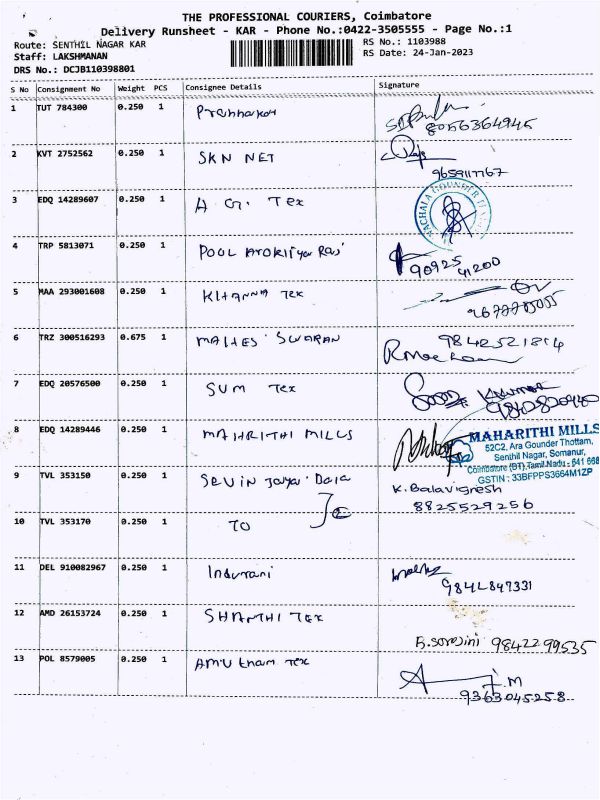 THE PROFESSIONAL COURIERS, Coimbatore
Delivery Runsheet - KAR - Phone No.:0422-3505555 - Page No.:1
Route: SENTHIL NAGAR KAR
Staff: LAKSHMANAN
DRS No.: DCJB110398801
RS No.: 1103988
RS Date: 24-Jan-2023
S No Consignment No Weight PCS Consignee Details Signature
1 TUT 784300 0.250 1 Prabhakar
8056364945
2 KVT 2752562 0.250 1 SKN NET
3 EDQ 14289607 0.250 1 A G. Tex
NACHALA GOUNDER
4 TRP 5813071 0.250 1 POOL
90925 41200
5 MAA 293001608 0.250 1 KHANNA Tex
6 TRZ 300516293 0.675 1 MAHES SWARAN
9842521814
7 EDQ 20576500 0.250 1 SUM Tex
8 EDQ 14289446 0.250 1 MAHRITHI MILLS
MAHARITHI MILLS
52C2, Ara Gounder Thottam,
Senthil Nagar, Somanur,
Coimbatore (DT), Tamil Nadu - 641 668
GSTIN : 33BFPPS3664M1ZP
9 TVL 353150 0.250 1
K. Balavignesh
8825529256
10 TVL 353170 0.250 1 TO
11 DEL 910082967 0.250 1 Indurani
9842847331
12 AMD 26153724 0.250 1 SHANTHI Tex
B. sorojini 9842299535
13 POL 8579005 0.250 1 AMU tham Tex
J.M
9363045258